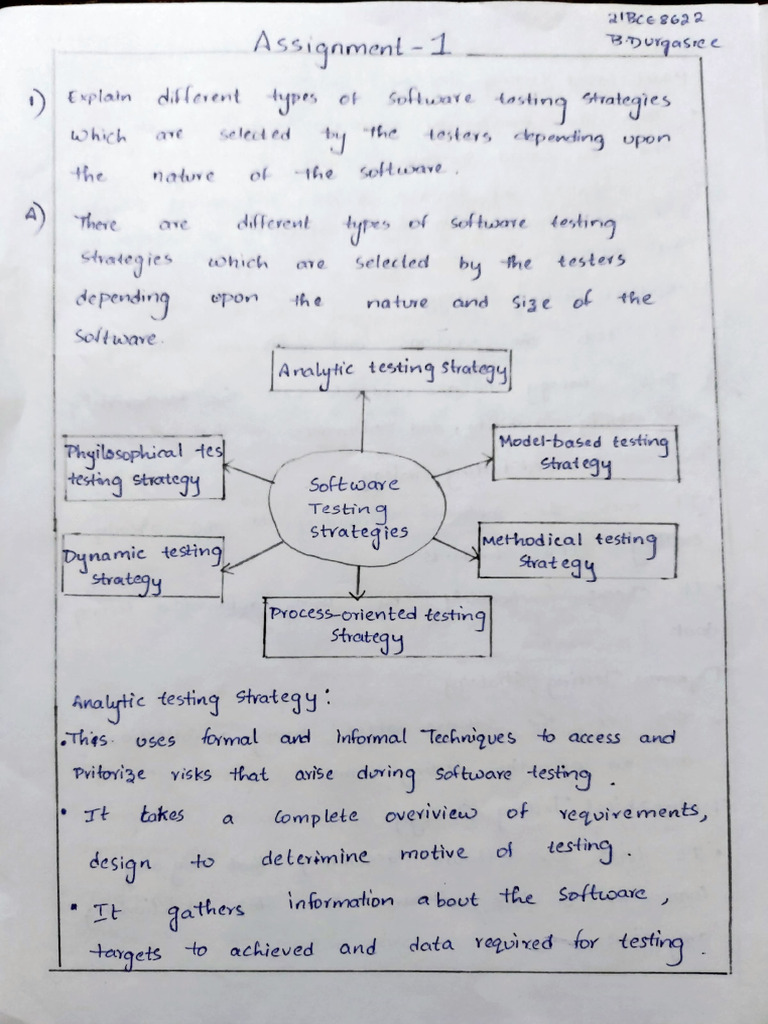 21BCE8622
B.Durgasree
Assignment - 1
1) Explain different types of software testing strategies
which are selected by the testers depending upon
the nature of the software.
A) There are different types of software testing
strategies which are selected by the testers
depending upon the nature and size of the
software.
Analytic testing strategy
Phyilosophical tes
testing strategy
Model-based testing
strategy
Software
Testing
strategies
Dynamic testing
strategy
Methodical testing
strategy
Process-oriented testing
strategy
Analytic testing strategy:
• This uses formal and informal Techniques to access and
Pritorize risks that arise during software testing.
• It takes a complete overiview of requirements,
design to determine motive of testing.
• It gathers information about the software,
targets to achieved and data required for testing.